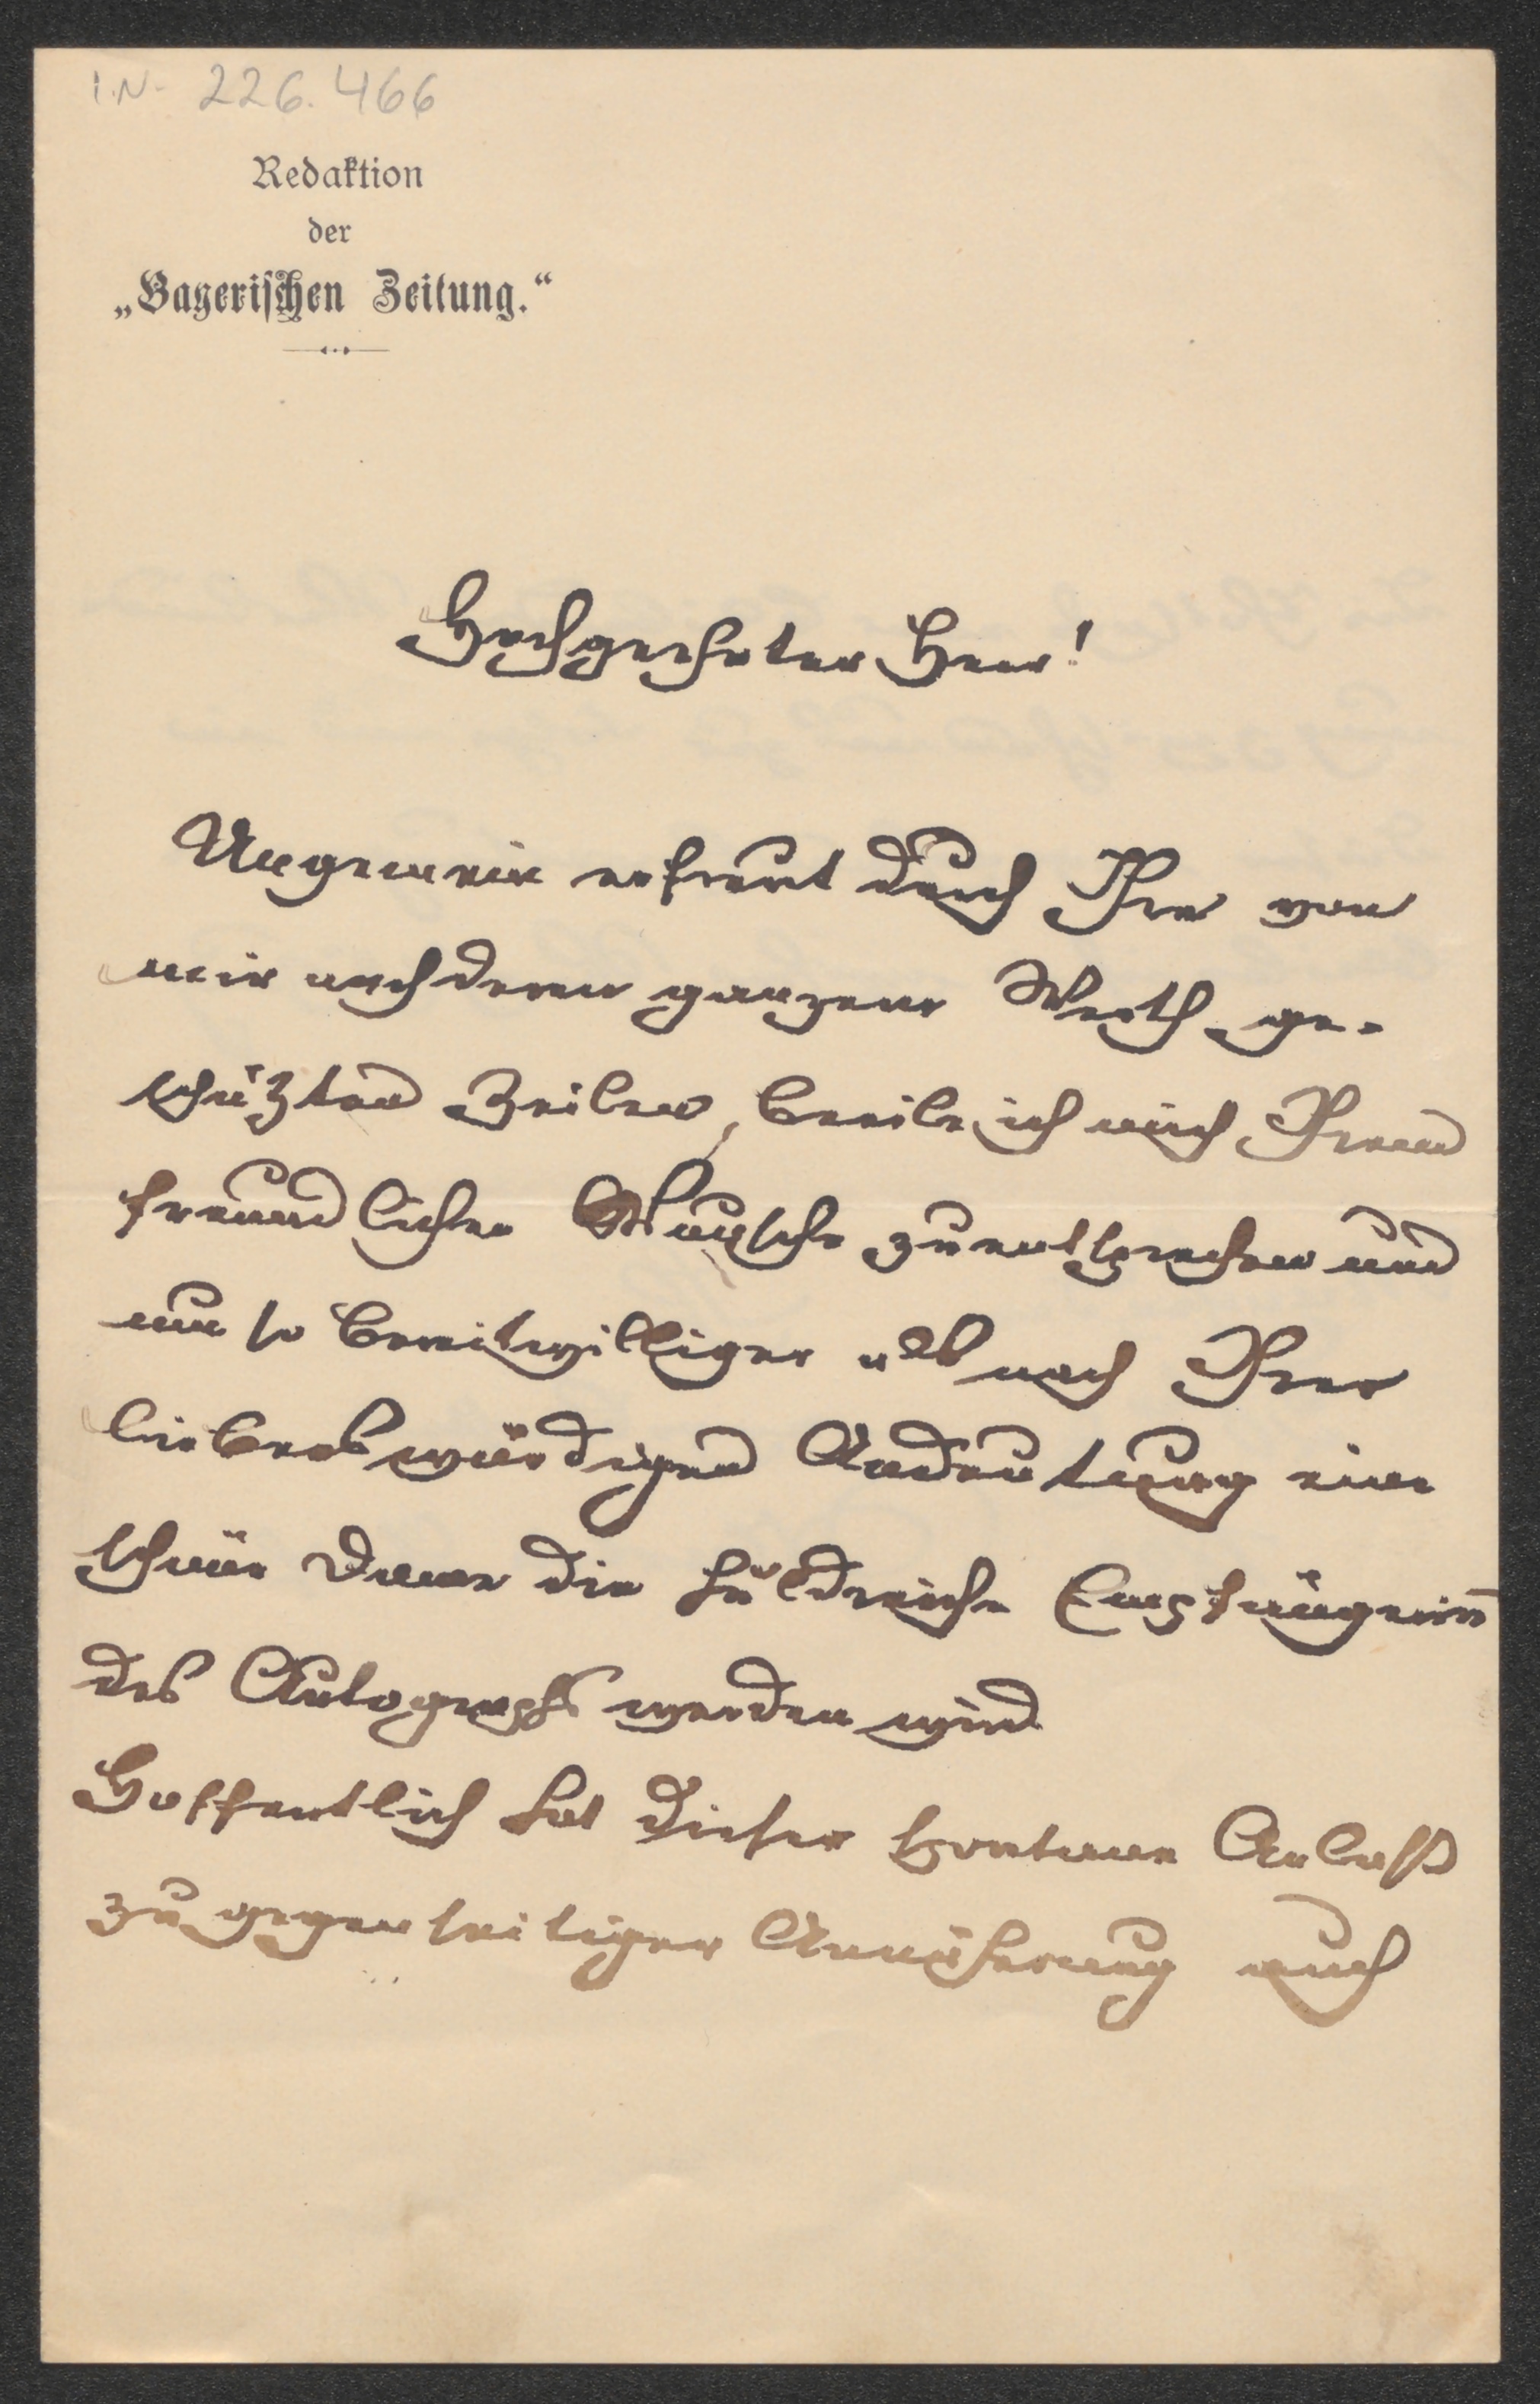 I.N. 226.466
Redaktion
der
„Bayerischen Zeitung.“
Hochgeehrter Herr!
Ungemein erfreut durch Ihre von
mir nach deren ganzem Werth ge-
schäzten Zeilen, beeile ich mich Ihrem
freundlichen Wunsche zu entsprechen und
um so bereitwilliger als nach Ihrer
liebenswürdigen Andeutung eine
schöne Dame die huldreiche Empfängerin̄
des Autographs werden wird.
Hoffentlich hat dieser spontane Anlaß
zu gegenseitiger Annäherung auch